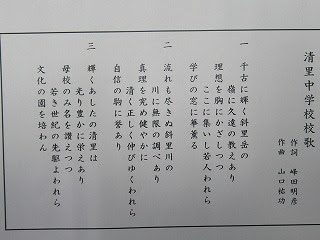 清里中学校校歌
作詞 峰田明彦
作曲 山口祐功
一 千古に輝く斜里岳の
嶺に久遠の教えあり
理想を胸にかざしつつ
ここに集いし若人われら
学びの窓に華薫る
二 流れも尽きぬ斜里川の
川に無限の調べあり
真理を究め健やかに
清く正しく伸びゆくわれら
自信の胸に誉あり
三 輝くあしたの清里は
光り豊かに栄えあり
母校のみ名を讃えつつ
若き世紀の先駆よわれら
文化の園を培わん